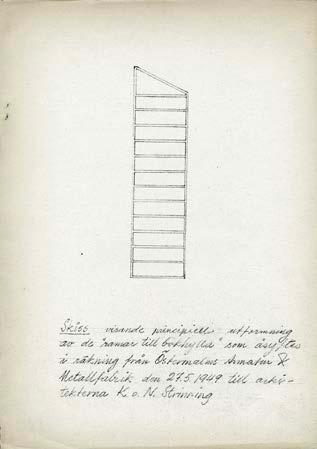 Skiss visande principiell utformning
av de "ramar till bokhylla" som åsyftes
i räkning från Östermalms Armatur &
Metallfabrik den 27.5.1949 till arki-
tekterna K. o. N. Strinning